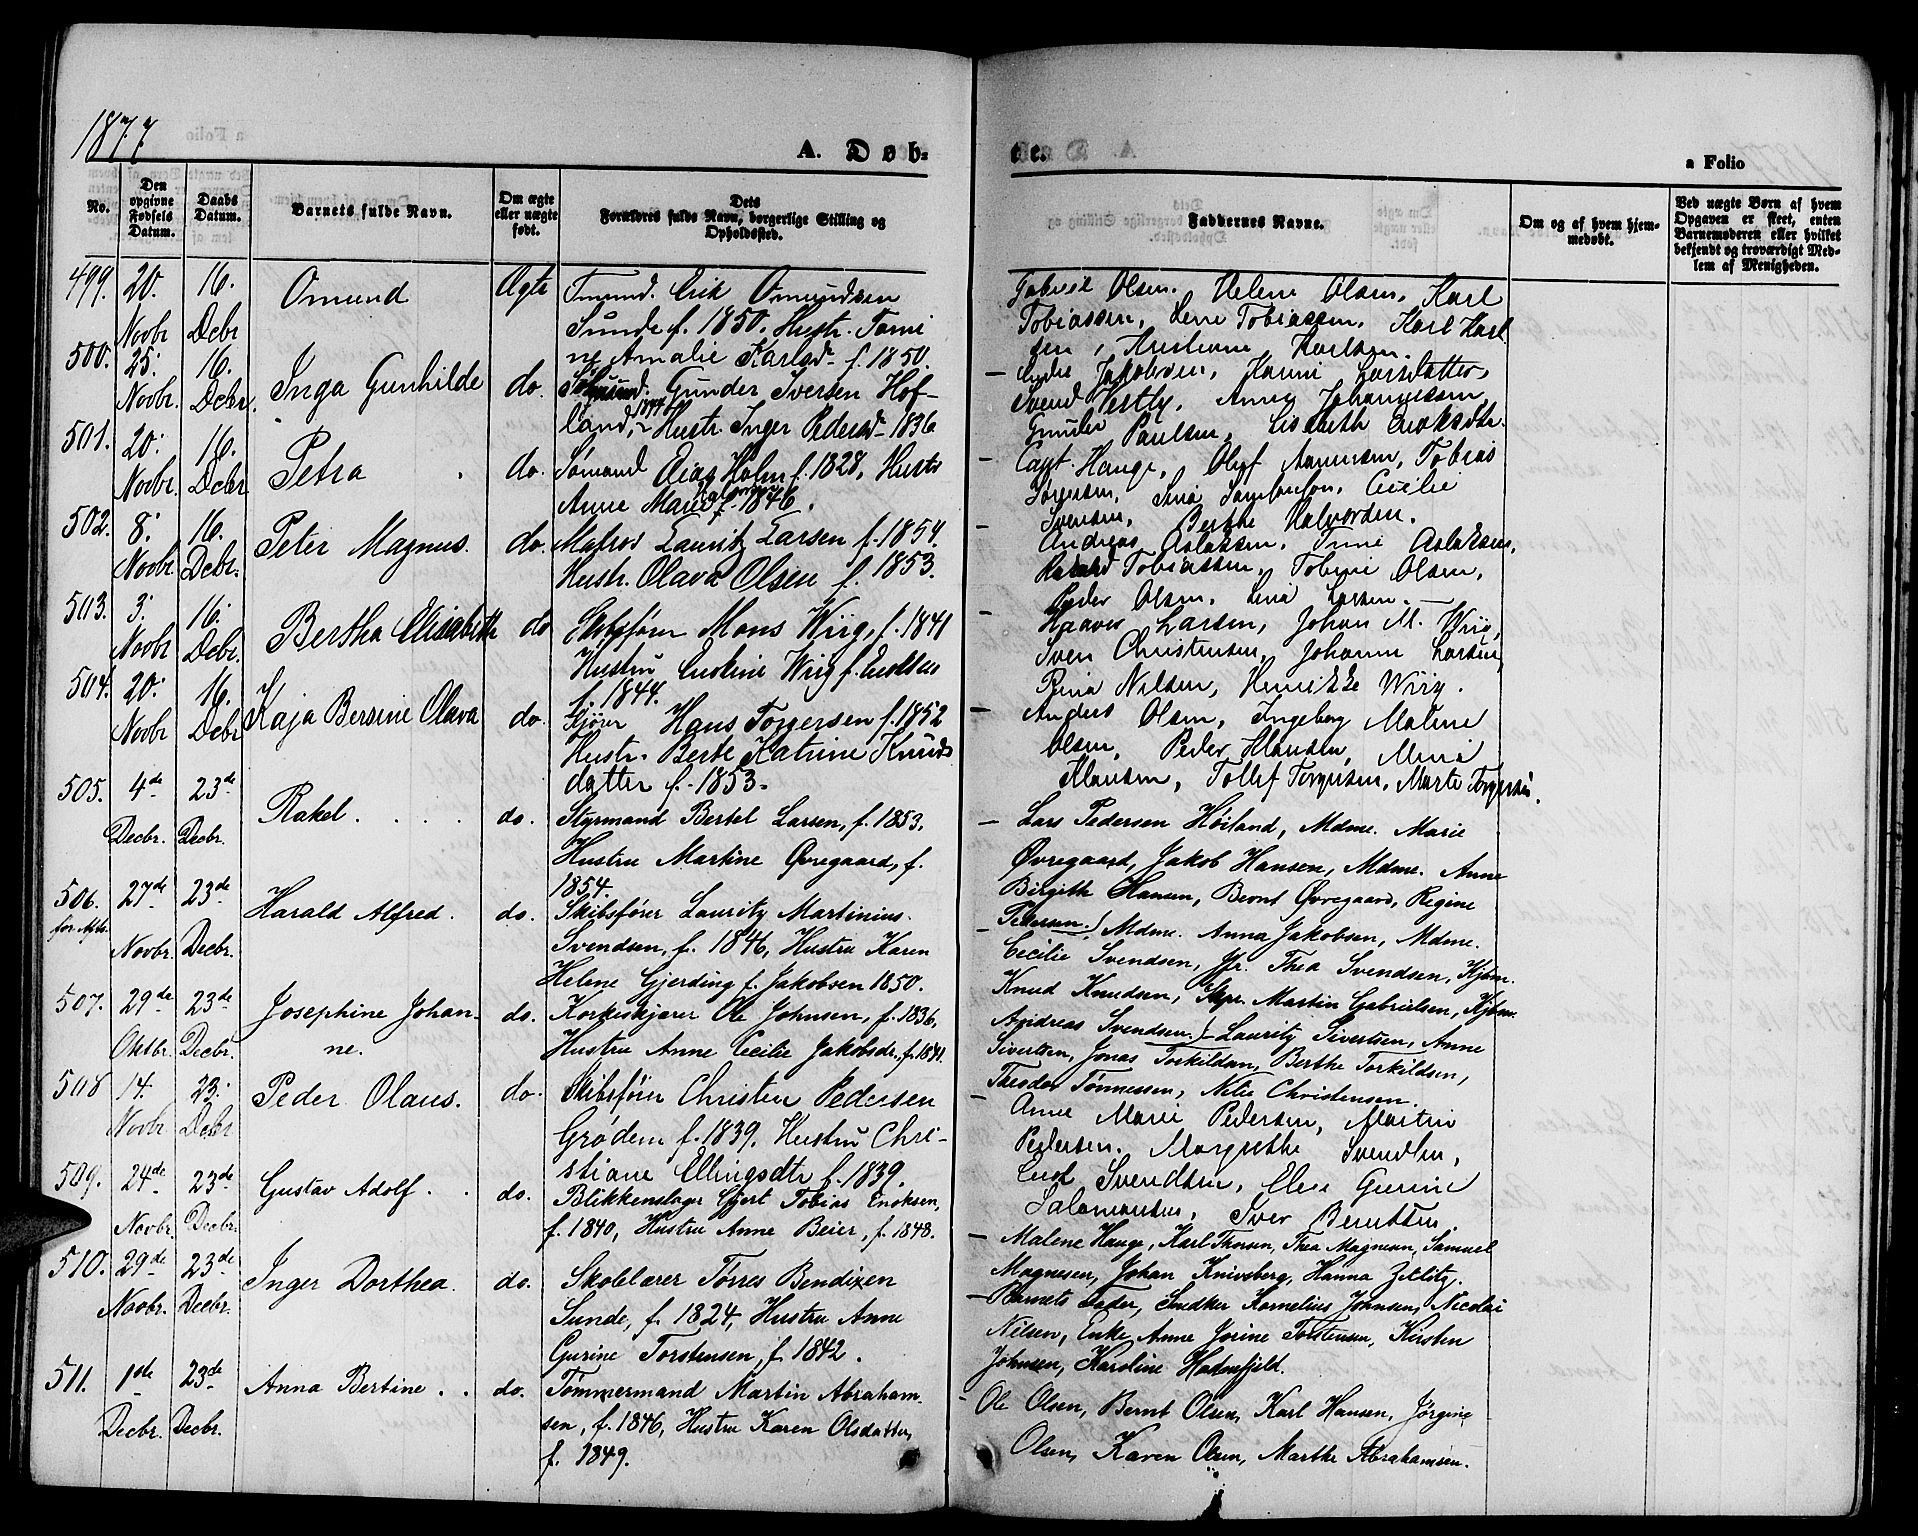 1877.
A. Døb-
No.
Den opgivne Fødsels Datum.
Daabs Datum.
Barnets fulde Navn.
Om ægte eller uægte født.
Dets Forældres fulde Navn, borgerlige Stilling og Opholdssted.
499. 20. 16. Omund Ægte Tmand. Erik Omundsen
Novbr Decbr Sunde f. 1850. Hustr. Tomi
ne Amalie Karlsd. f. 1850.
500. 25. 16. Inga Gunhilde do. Gunder Iversen Hof-
Novbr. Decbr. land, 1844 Hustr. Inger Pedersd. 1836
501. 20. 16. Petra do. Sømand Elias Holm f. 1828, Hustr
Novbr. Decbr Anne Marie f. 1846.
502. 8. 16. Peter Magnus. do. Matros Lauritz Larsen f. 1854.
Novbr. Decbr. Hustr. Olava Olsen f. 1853.
503. 3. 16. Bertha Elisabeth do Skibsfører Mons Wiig, f. 1841
Novbr Decbr. Hustru Wiig f.
f. 1844.
504. 20. 16. Kaja Bersine Olava do. Hans Torgersen f. 1852
Novbr Decbr Hustr. Berte Katrine Knuds
datter f. 1853.
505. 4de 23de Rakel. do. Styrmand Bertel Larsen, f. 1853,
Decbr. Decbr. Hustru Martine Øvregaard, f.
1854.
506. 27de 23de Harald Alfred. do. Skibsfører Lauritz Martinius
Novbr. Decbr. Svendsen, f. 1846, Hustru Karen
Helene Gjerding f. Jakobsen 1850.
507. 29de 23de Josephine Johan- do. Korkeskjærer Ole Johnsen, f. 1836,
Oktbr. Decbr. ne. Hustru Anne Cecilie Jakobsdr., f. 1841.
508 14. 23. Peder Olaus. do. Skibsfører Christen Pedersen
Novbr Decbr Grødem f. 1839. Hustru Chri-
stiane Ellingsdtr f. 1839.
509. 24de 23de Gustav Adolf. do. Blikkenslager Gjert Tobias Enoksen,
Novbr. Decbr. f. 1840, Hustru Anne Beier, f. 1848.
510. 29de 23de Inger Dorthea. do. Skolelærer Tørres Bendixen
Novbr. Decbr. Sunde, f. 1824, Hustru Anne
Gurine Torstensen, f. 1842.
511. 1ste 23de Anna Bertine. do. Tømmermand Martin Abraham-
Decbr. Decbr. sen, f. 1846, Hustru Karen Olsdatter,
f. 1849.
te.
a Folio
Faddernes Navne.
Om og af hvem hjemmedøbt.
Ved uægte Børn af hvem Opgaven er skeet, enten Barnemoderen eller hvilket bekjendt og troværdigt Medlem af Menigheden.
Gabriel Olsen. Helene Olsen, Karl
Tobiassen, Lene Tobiassen, Karl Karl
sen, Kristiane Karlsen.
Jakobsen, Hanne Larsdatter,
Svend Vestly, Anne Johannessen,
Gunder Paulsen, Lisabeth
Capt. Hauge, Oluf Aanensen, Tobias
Cecilie
Svensen, Berthe Halvorsen.
Andreas Aslaksen, Aslaksen,
Tobiassen, Tobine Olsen,
Peder Olsen, Lina Larsen.
Haaver Larsen, Johan M. Wiig,
Sven Christensen, Johanne Larsen,
Rina Nilsen, Henrikke Wiig.
Anders Olsen, Ingeborg Malene
Olsen, Peder Klausen, Mina
Klausen, Tollef Torgersen, Marte Torgersen.
Lars Pedersen Høiland, Mdme. Marie
Øvregaard, Jakob Hansen, Mdme. Anne
Birgith Hansen, Bernt Øvregaard, Regine
Pedersen. Mdme. Anna Jakobsen, Mdme.
Cecilie Svendsen, Jfr. Thea Svendsen, Kjbm.
Knud Knudsen, Skpr. Martin Gabrielsen, Kjbm.
Andreas Svendsen. Lauritz Sivertsen, Anne
Sivertsen, Jonas Torkildsen, Berthe Torkildsen,
Theodor Tønnessen, Nelie Christensen.
Anne Marie Pedersen, Martin
Pedersen. Margrethe Svendsen,
Svendsen, Elen Gurine
Salamonsen, Iver Berntsen.
Malene Hauge, Karl Thorsen, Thea Magnesen, Samuel
Magnesen, Johan Knivsberg, Hanna Zetlitz.
Barnets Fader, Snedker Kornelius Johnsen, Nicolai
Nilsen, Enke Anne Jorine Torstensen, Kirsten
Johnsen, Karoline Hodnefjeld.
Ole Olsen, Bernt Olsen, Karl Hansen, Jørgine
Olsen, Karen Olsen, Marthe Abrahamsen.